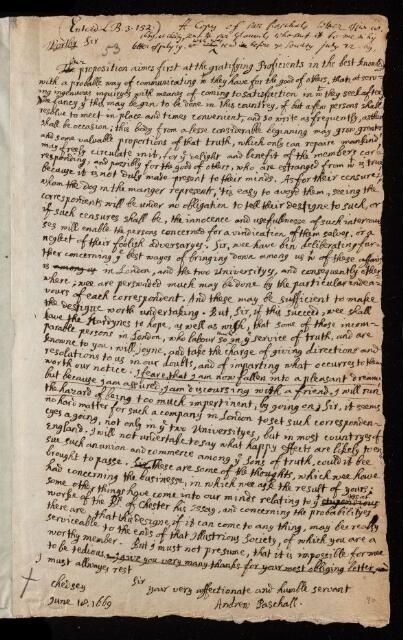 Entered LB. 3. 152. A Copy of Mr Paschals Letter
Worthy Sir
53
before ye Society July 22. 69.
The proposition aimes first at the gratifying Proficients in the best knowledge
with a probable way of communicating wt they have for the good of others, then at serving
ingenuous inquirers with meanes of coming to satisfaction in wt they seek after.
I fancy yt this may begin to be done in this country, if but a few persons shall
resolve to meet in place and times convenient, and so write as frequently, as there
shall be occasion; this body from a lesse considerable beginning may grow greater
and some valuable proportions of that truth, which only can repaire mankind
may freely circulate in it, for ye delight and benefit of the members cor-
responding; and possibly for the good of others, who are estranged from it
because it is not duly made present to their minds. As for their censures
whom the Dog in the manger represents, 'tis easy to avoid them, seeing the
correspondents will be under no obligation to tell their designe to such, or
if such censures shall be, the innocence and usefulnesse of such intercour-
ses will enable the persons concerned for a vindication of them selves, or a
neglect of their foolish adversarys. Sir, we have bin deliberating fur-
ther concerning ye best wayes of bringing down among us of these affaires
in London, and the two Universitys, and consequently other
where; we are perswaded much may be done by the particular endea-
vours of each correspondent. And these may be sufficient to make
the designe worth undertaking. But, Sir, if this succeed, wee shall
have the to hope, as well as wish, that some of those incom-
parable persons in London, who labour so in ye service of truth, and are
knowne to you, will joyne, and take the charge of giving directions and
resolutions to us in our doubts, and of imparting what occurres to them
worth our notice. I feare that I am now fallen into a pleasant dreame,
but because I am assured I am discoursing with a friend, I will run
the hazard of being too much impertinent, by going on; Sir, it seems
no hard matter for such a company in London to set such corresponden-
cyes a going, not only in ye two Universityes, but in most countryes of
England. I will not undertake to say what happy effects are likely to en-
sue such an union and commerce among ye sons of truth, could it bee
brought to passe. Sir, these are some of the thoughts, which wee have
had concerning the businesse, in which wee ask the result of yours;
some other things have come into our minds relating to ye
worke of the Bp. of Chester his Essay, and concerning the probability
there are that the designe, if it can come to any thing, may be really
serviceable to the ends of that Illustrious Society, of which you are a
worthy member. But I must not presume, that it is impossible for mee
to be tedious. I give you very many thanks for your most obliging letter, and
I must allwayes rest
Sir
Chedsey your very affectionate and humble servant
June 18. 1669 Andrew Paschall.